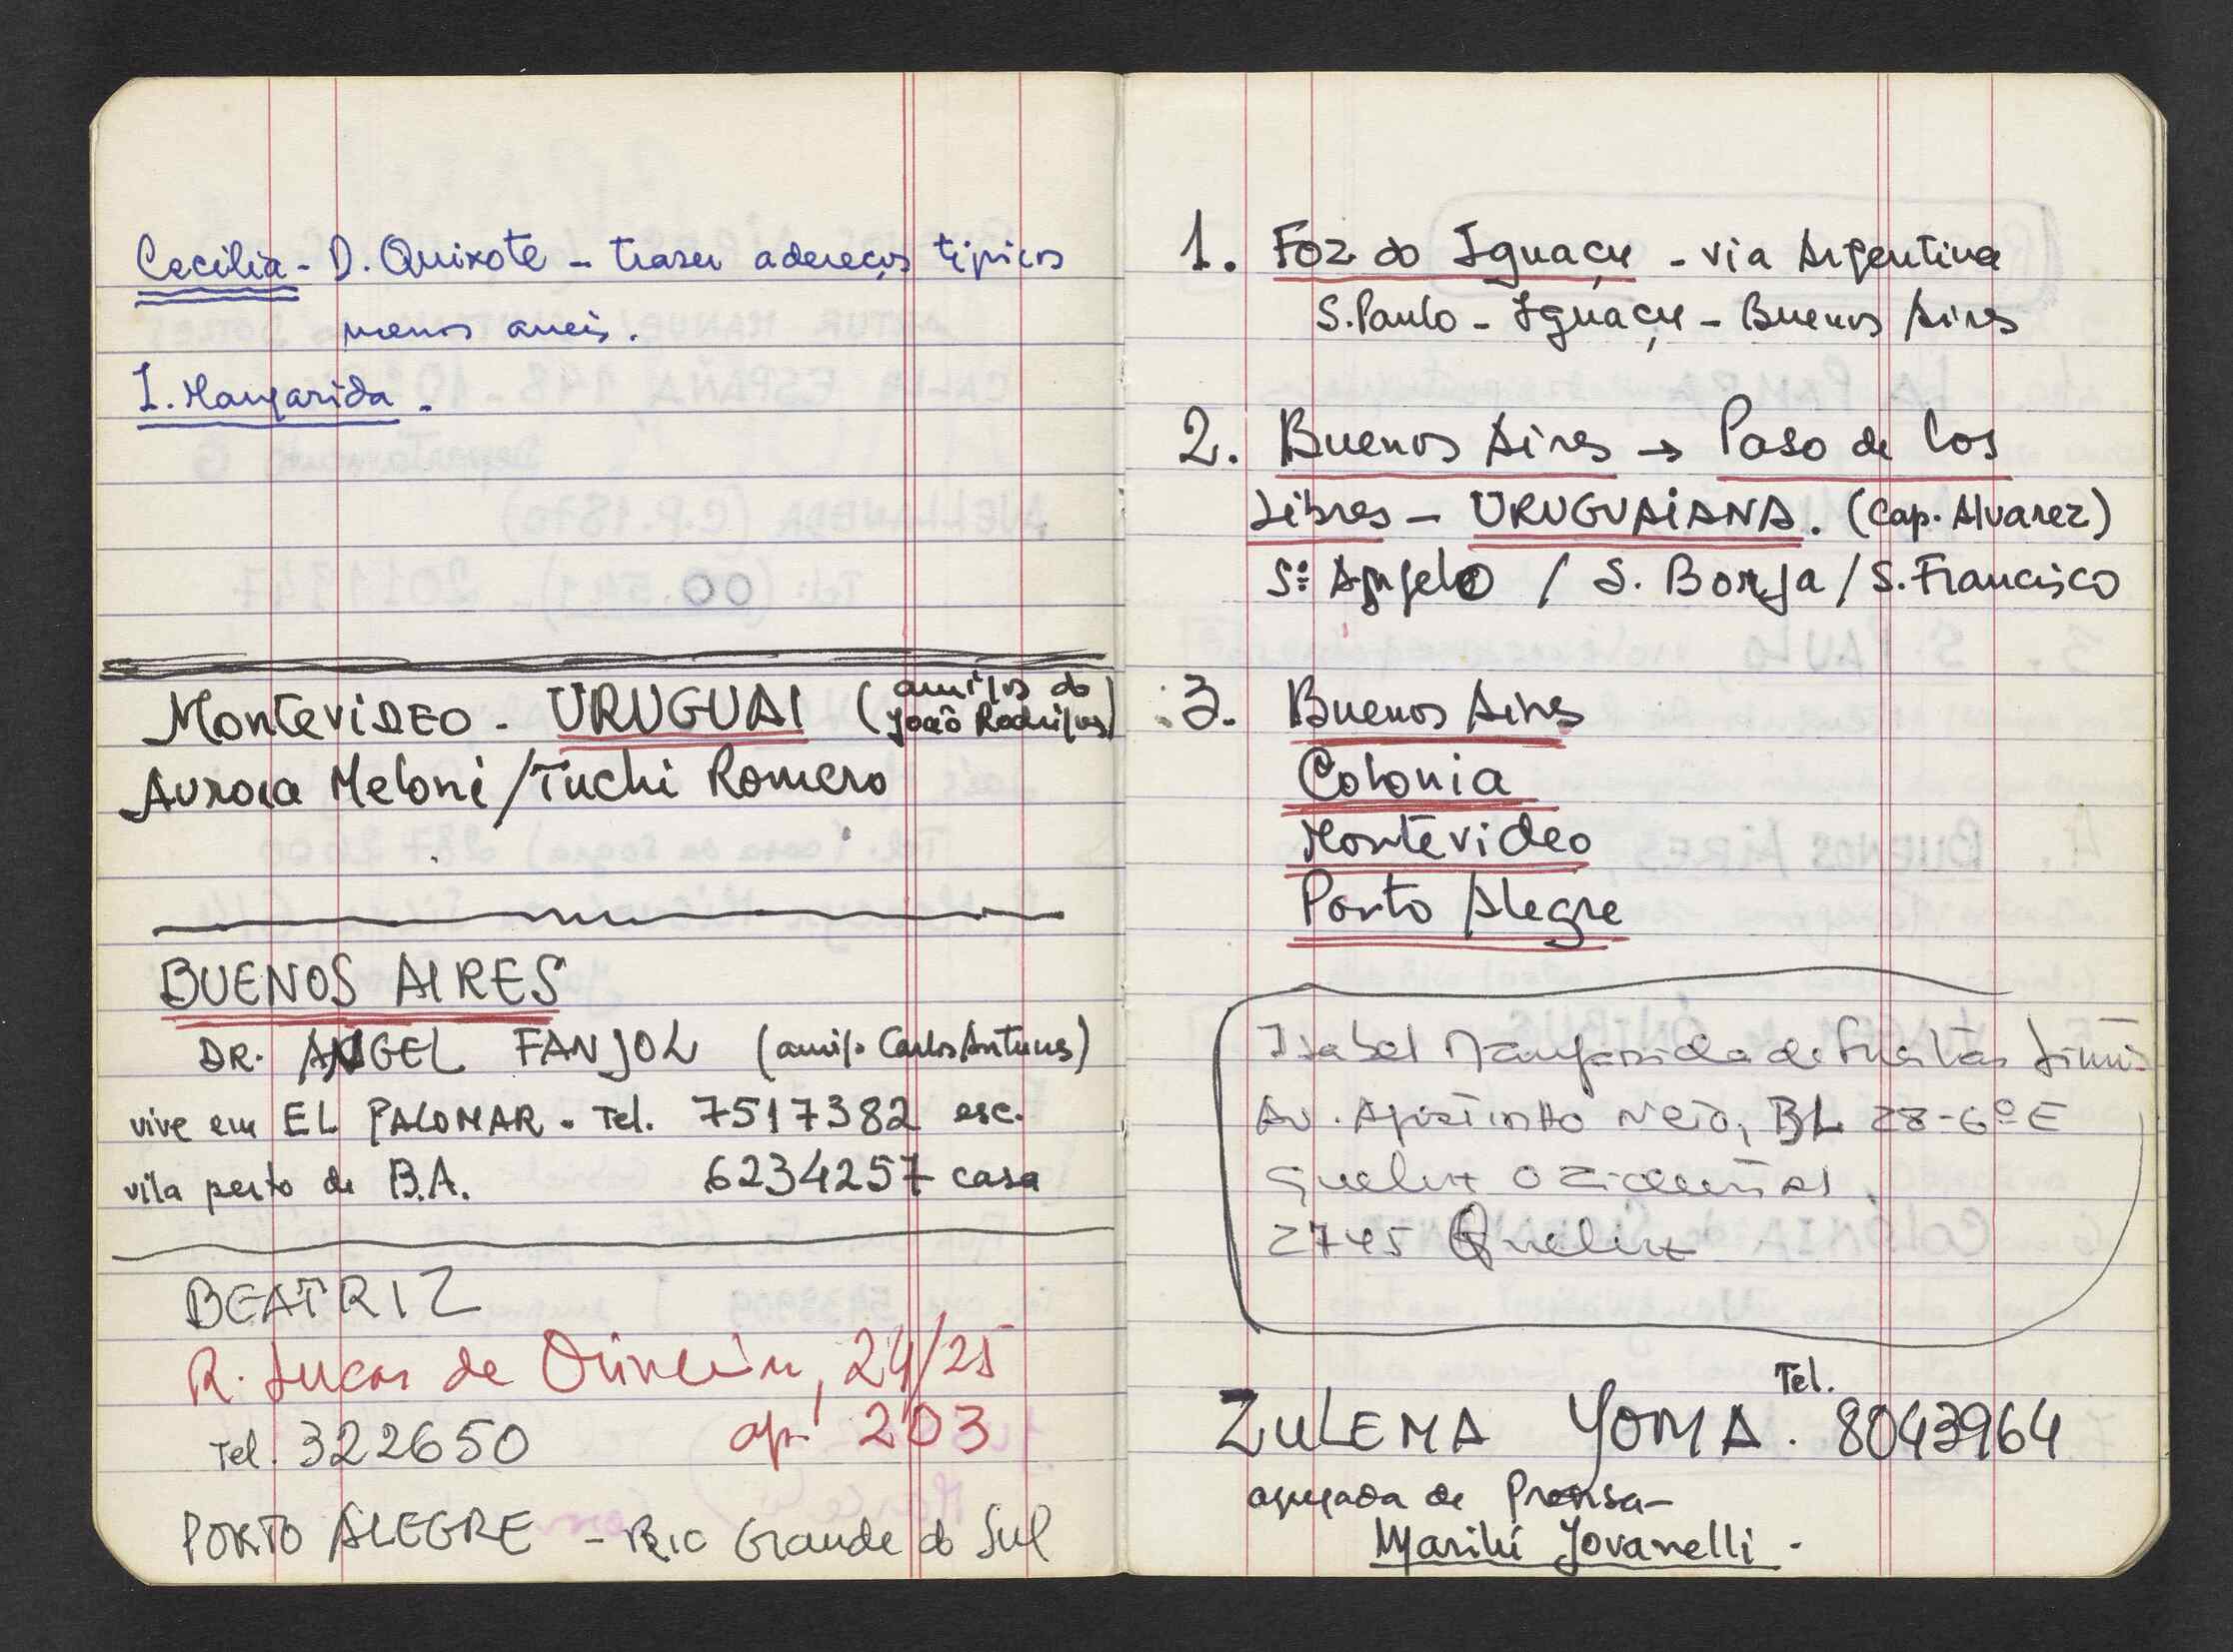 Cecilia - D. Quixote - trazer adereços típicos
menos aneis.
I. Margarida -
MONTEVIDEO - URUGUAI (amigos do
João Rodrigues)
Aurora Meloni / Tuchi Romero
BUENOS AIRES
DR. ANGEL FANJOL (amigo Carlos Antunes)
vive em EL PALOMAR - Tel. 7517382 esc.
vila perto de B.A. 6234257 casa
BEATRIZ
R. Lucas de Oliveira, 24/25
Tel. 322650 ap. 203
PORTO ALEGRE - Rio Grande do Sul
1. Foz do Iguaçu - via Argentina
S. Paulo - Iguaçu - Buenos Aires
2. Buenos Aires → Paso de los
Libres - URUGUAIANA. (Cap. Alvarez)
Sº Angelo / S. Borja / S. Francisco
3. Buenos Aires
Colonia
Montevideo
Porto Alegre
Isabel Margarida de Freitas
Av. Agostinho Neto, BL 28-6º E
Queluz Ocidental.
2745 Queluz
Tel.
ZULEMA YOMA. 8043964
agregada de Prensa -
Marilú Jovanelli -